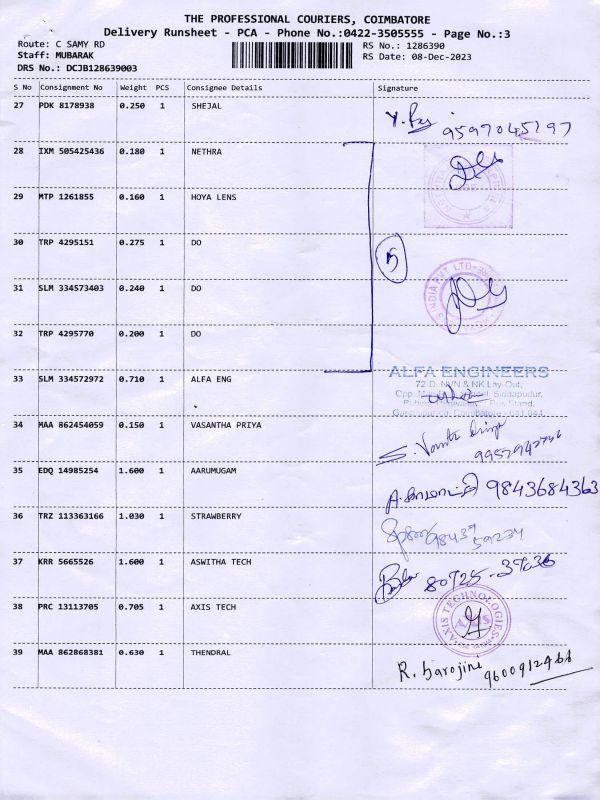 THE PROFESSIONAL COURIERS, COIMBATORE
Delivery Runsheet - PCA - Phone No.:0422-3505555 - Page No.:3
Route: C SAMY RD
RS No.: 1286390
Staff: MUBARAK
RS Date: 08-Dec-2023
DRS No.: DCJB128639003
S No Consignment No Weight PCS Consignee Details Signature
27 PDK 8178938 0.250 1 SHEJAL
28 IXM 505425436 0.180 1 NETHRA
29 MTP 1261855 0.160 1 HOYA LENS
30 TRP 4295151 0.275 1 DO
5
31 SLM 334573403 0.240 1 DO
INDIA PVT LTD
32 TRP 4295770 0.200 1 DO
33 SLM 334572972 0.710 1 ALFA ENG
ALFA ENGINEERS
72-D, NVN & NK Lay-Out,
34 MAA 862454059 0.150 1 VASANTHA PRIYA
35 EDQ 14985254 1.600 1 AARUMUGAM
9843684363
36 TRZ 113363166 1.030 1 STRAWBERRY
37 KRR 5665526 1.600 1 ASWITHA TECH
38 PRC 13113705 0.705 1 AXIS TECH
AXIS TECHNOLOGIES
39 MAA 862868381 0.630 1 THENDRAL